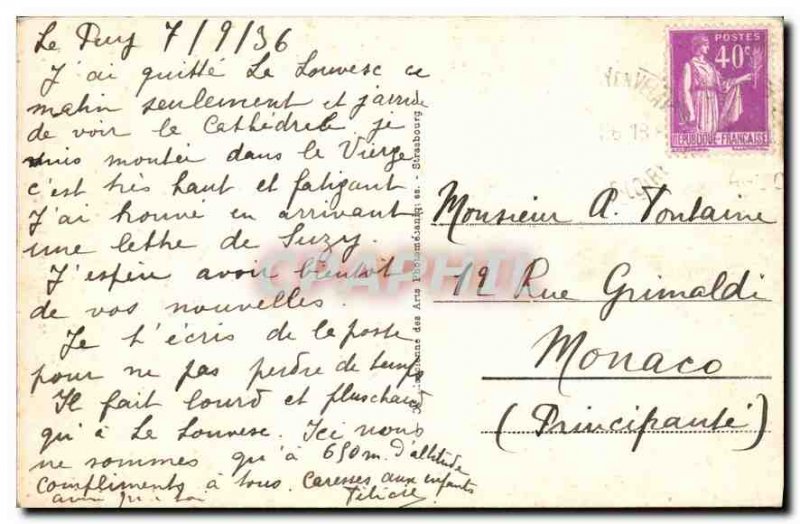 Le Puy 7/9/36
J'ai quitté Le Louvesc ce
matin seulement et j'arrive
de voir la Cathédrale je
suis montée dans la Vierge
c'est très haut et fatigant
J'ai trouvé en arrivant
une lettre de Suzy.
J'espère avoir bientôt
de vos nouvelles.
Je t'écris de la poste
pour ne pas perdre de temps
Il fait lourd et plus chaud
qu'à Le Louvesc. Ici nous
ne sommes qu'à 650 m. d'altitude
compliments à tous. Caresses aux enfants
des Arts Photomécaniques. - Strasbourg
POSTES
40c
REPUBLIQUE-FRANÇAISE
Monsieur A. Fontaine
12 Rue Grimaldi
Monaco
(Principauté)
CPAPHIL